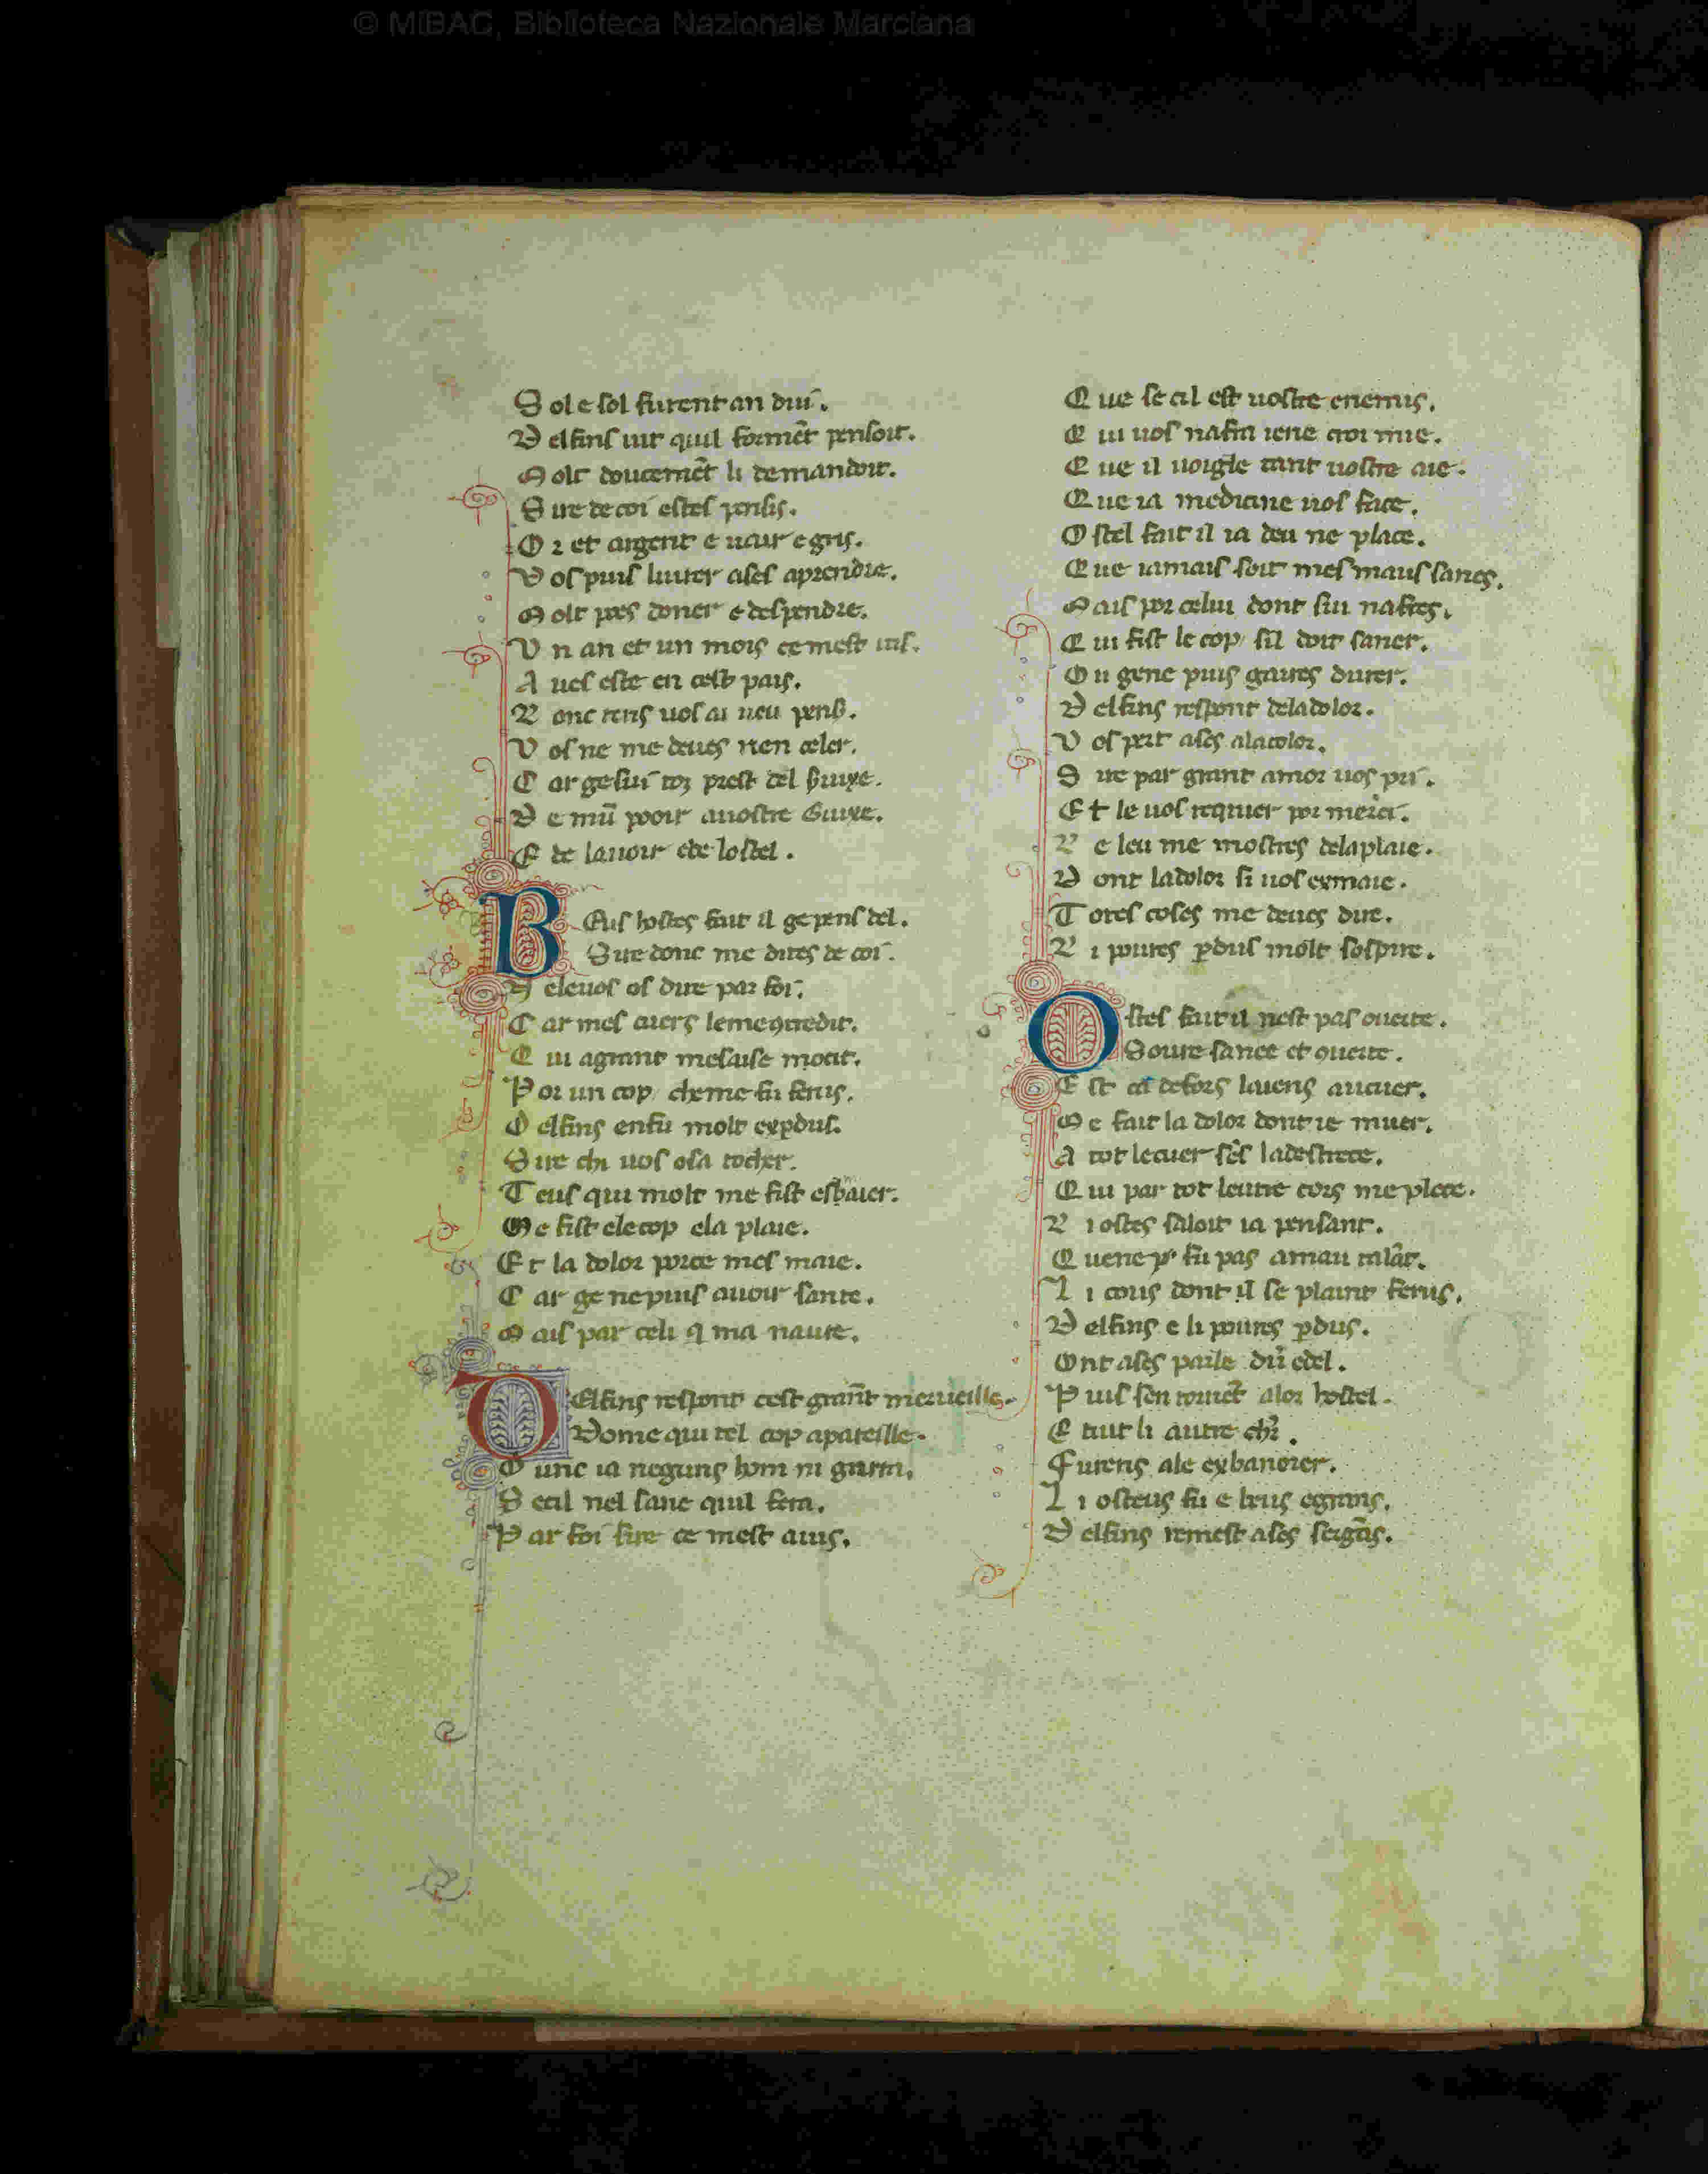 © MiBAC, Biblioteca Nazionale Marciana
S ol e sol furent an dui.
D elfins uit quil formēt pensoit.
M olt doucemēt li demandoit.
S ire de coi estes pensis.
O r et argent e uair e gris.
V os puis liurer ases aprendre.
M olt pres doner e despendre.
V n an et un mois ce mest uis.
A ues este en cest pais.
V os ne me deues rien celer.
C ar ge sui toz prest del
D e mū pooir auostre
E de lauoir ede lostel.
B Eus hostes fait il ge pens del.
Sire donc me dites de coi.
S eleuos os dire par foi.
C ar mes auers leme ɔtredit.
Q ui agrant mesaise mocit.
P or un cop che me fu ferus.
D elfins enfu molt exꝑdus.
S ire chi uos osa tocher.
T eus qui molt me fist esbaier.
M e fist ele cop ela plaie.
E t la dolor porce mes maie.
C ar ge ne puis auoir sante.
M ais par celi q ma naure.
D Elfins respont cest grant merueille.
Dome qui tel cop apareille.
D unc ia neguns hom ni garra,
S ecil nel sane quil fera.
P ar foi sire ce mest auis.
Q ue se cil est uostre enemis.
Q ui uos nafra iene croi mie.
Q ue il uoigle tant uostre aie.
Q ue ia medicine uos face.
O stel fait il ia deu ne place.
Q ue iamais soit mes maus sanes.
M ais por celui dont sui nafres.
Q ui fist le cop sil doit saner.
O u gene puis gaires durer.
D elfins respont deladolor.
V os pert ases alacolor.
S ire par grant amor uos pri.
E t le uos requier por merci.
Q e leu me mostres delaplaie.
D ont ladolor si uos exmaie.
T otes coses me deues dire.
L i poures ꝑdus molt sospire.
O stes fait il nest pas ouerte.
Soure sanee et ouerte.
E st defors
M e fait la dolor dont ie muer.
A tot lecuer sēs ladestrece.
Q ui par tot leutre cors me plece.
L i ostes saloit ia pensant.
Q uene fu pas amau talāt.
L i cous dont il se plaint ferus.
D elfins e li poures ꝑdus.
Ont ases parle dū edel.
P uis sen tornēt alor hostel.
E tuit li autre
Furens ale exbanoier.
L i osteus fu e beus egrans.
D elfins remest ases